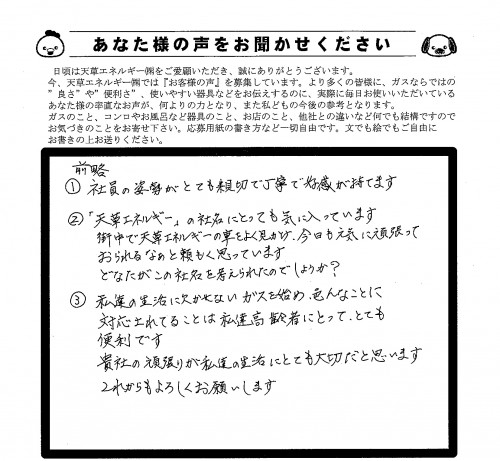 あなた様の声をお聞かせください
日頃は天草エネルギー㈱をご愛顧いただき、誠にありがとうございます。
今、天草エネルギー㈱では『お客様の声』を募集しています。より多くの皆様に、ガスならではの
”良さ”や”便利さ”、使いやすい器具などをお伝えするのに、実際に毎日お使いいただいている
あなた様の率直なお声が、何よりの力となり、また私どもの今後の参考となります。
ガスのこと、コンロやお風呂など器具のこと、お店のこと、他社との違いなど何でも結構ですので
お気づきのことをお寄せ下さい。応募用紙の書き方など一切自由です。文でも絵でもご自由に
お書きの上お送りください。
前略
① 社員の姿勢がとても親切で丁寧で好感が持てます
②「天草エネルギー」の社名にとっても気に入っています
街中で天草エネルギーの車をよく見かけ、今日も元気に頑張って
おられるなぁと頼もしく思っています
どなたがこの社名を考えられたのでしょうか?
③ 私達の生活に欠かせないガスを始め、色んなことに
対応されてることは私達高齢者にとって、とても
便利です
貴社の頑張りが私達の生活にとても大切だと思います
これからもよろしくお願いします